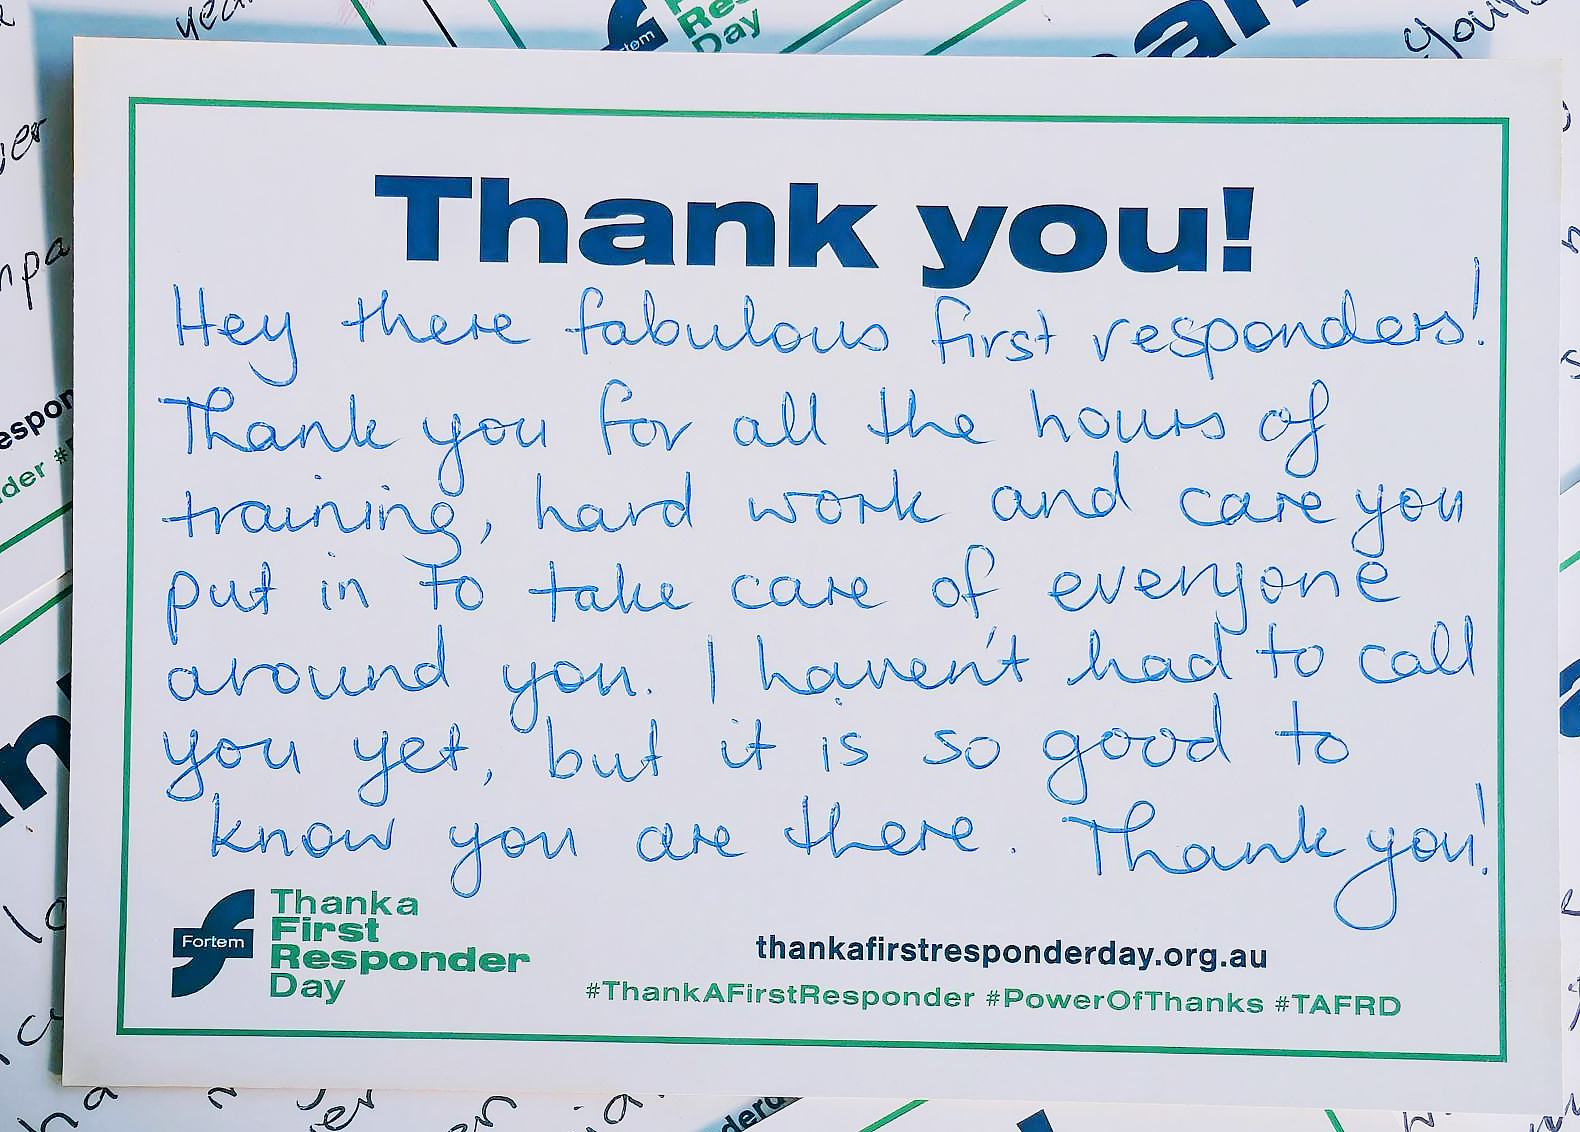 Thank you!
Hey there fabulous first responders!
Thank you for all the hours of
training, hard work and care you
put in to take care of everyone
around you. I haven't had to call
you yet, but it is so good to
know you are there. Thank you!
Fortem
Thank a
First
Responder
Day
thankafirstresponderday.org.au
#ThankAFirstResponder #PowerOfThanks #TAFRD